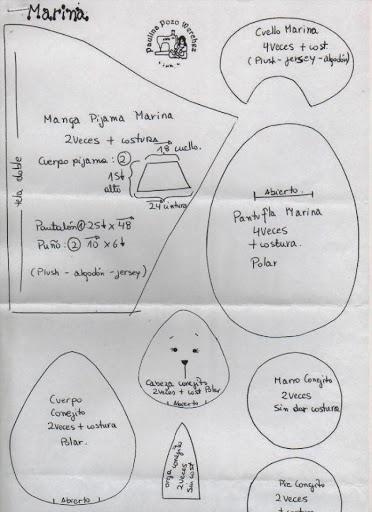 Marina
Paulina Pozo Werchez
"ina"
Cuello Marina
4Veces + cost
(Plush-jersey-algodón)
Manga Pijama Marina
2Veces + costura
Cuerpo pijama: ②
18 cuello.
15↓
alto
24 cintura
Pantalón①:25↓ x 48
Puño: ② 10 x 6↓
(Plush - algodón - jersey)
tela doble
Abierto.
Pantufla Marina
4Veces
+ costura.
Polar
Cabeza conejito
2veces + cost Polar
Abierto
Cuerpo
Conejito
2veces + costura
Polar.
Abierto
oreja conejito
2veces
Sin cost
Mano Conejito
2veces
Sin dar costura
Pie Conejito
2veces
+ costura